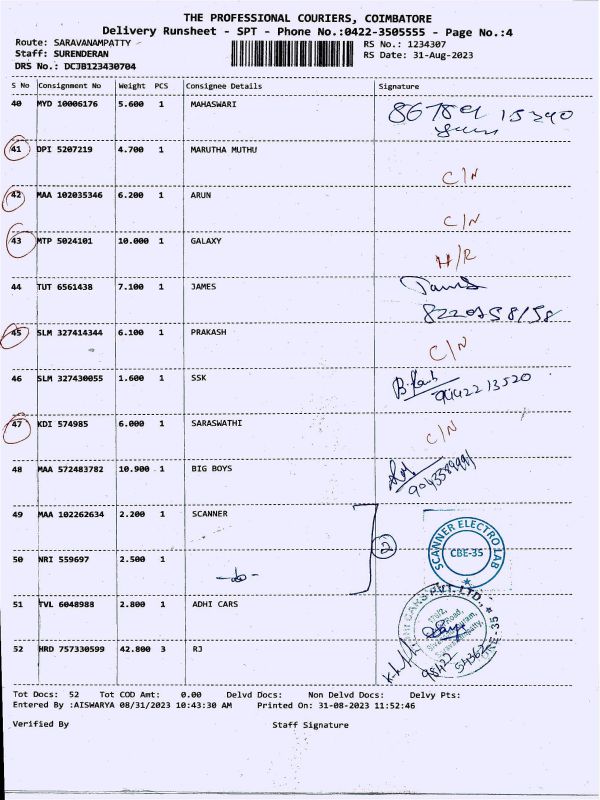 THE PROFESSIONAL COURIERS, COIMBATORE
Delivery Runsheet - SPT - Phone No.:0422-3505555 - Page No.:4
Route: SARAVANAMPATTY
RS No.: 1234307
Staff: SURENDERAN
RS Date: 31-Aug-2023
DRS No.: DCJB123430704
S No Consignment No Weight PCS Consignee Details Signature
40 MYD 10006176 5.600 1 MAHASWARI
41 DPI 5207219 4.700 1 MARUTHA MUTHU
C/N
42 MAA 102035346 6.200 1 ARUN
C/N
43 MTP 5024101 10.000 1 GALAXY
H/R
44 TUT 6561438 7.100 1 JAMES
45 SLM 327414344 6.100 1 PRAKASH
C/N
46 SLM 327430055 1.600 1 SSK
9442213520
47 KDI 574985 6.000 1 SARASWATHI
C/N
48 MAA 572483782 10.900 1 BIG BOYS
49 MAA 102262634 2.200 1 SCANNER
2
SCANNER ELECTRO LAB
CBE-35
50 NRI 559697 2.500 1
-do-
51 TVL 6048988 2.800 1 ADHI CARS
52 HRD 757330599 42.800 3 RJ
Tot Docs: 52 Tot COD Amt: 0.00 Delvd Docs: Non Delvd Docs: Delvy Pts:
Entered By :AISWARYA 08/31/2023 10:43:30 AM Printed On: 31-08-2023 11:52:46
Verified By Staff Signature